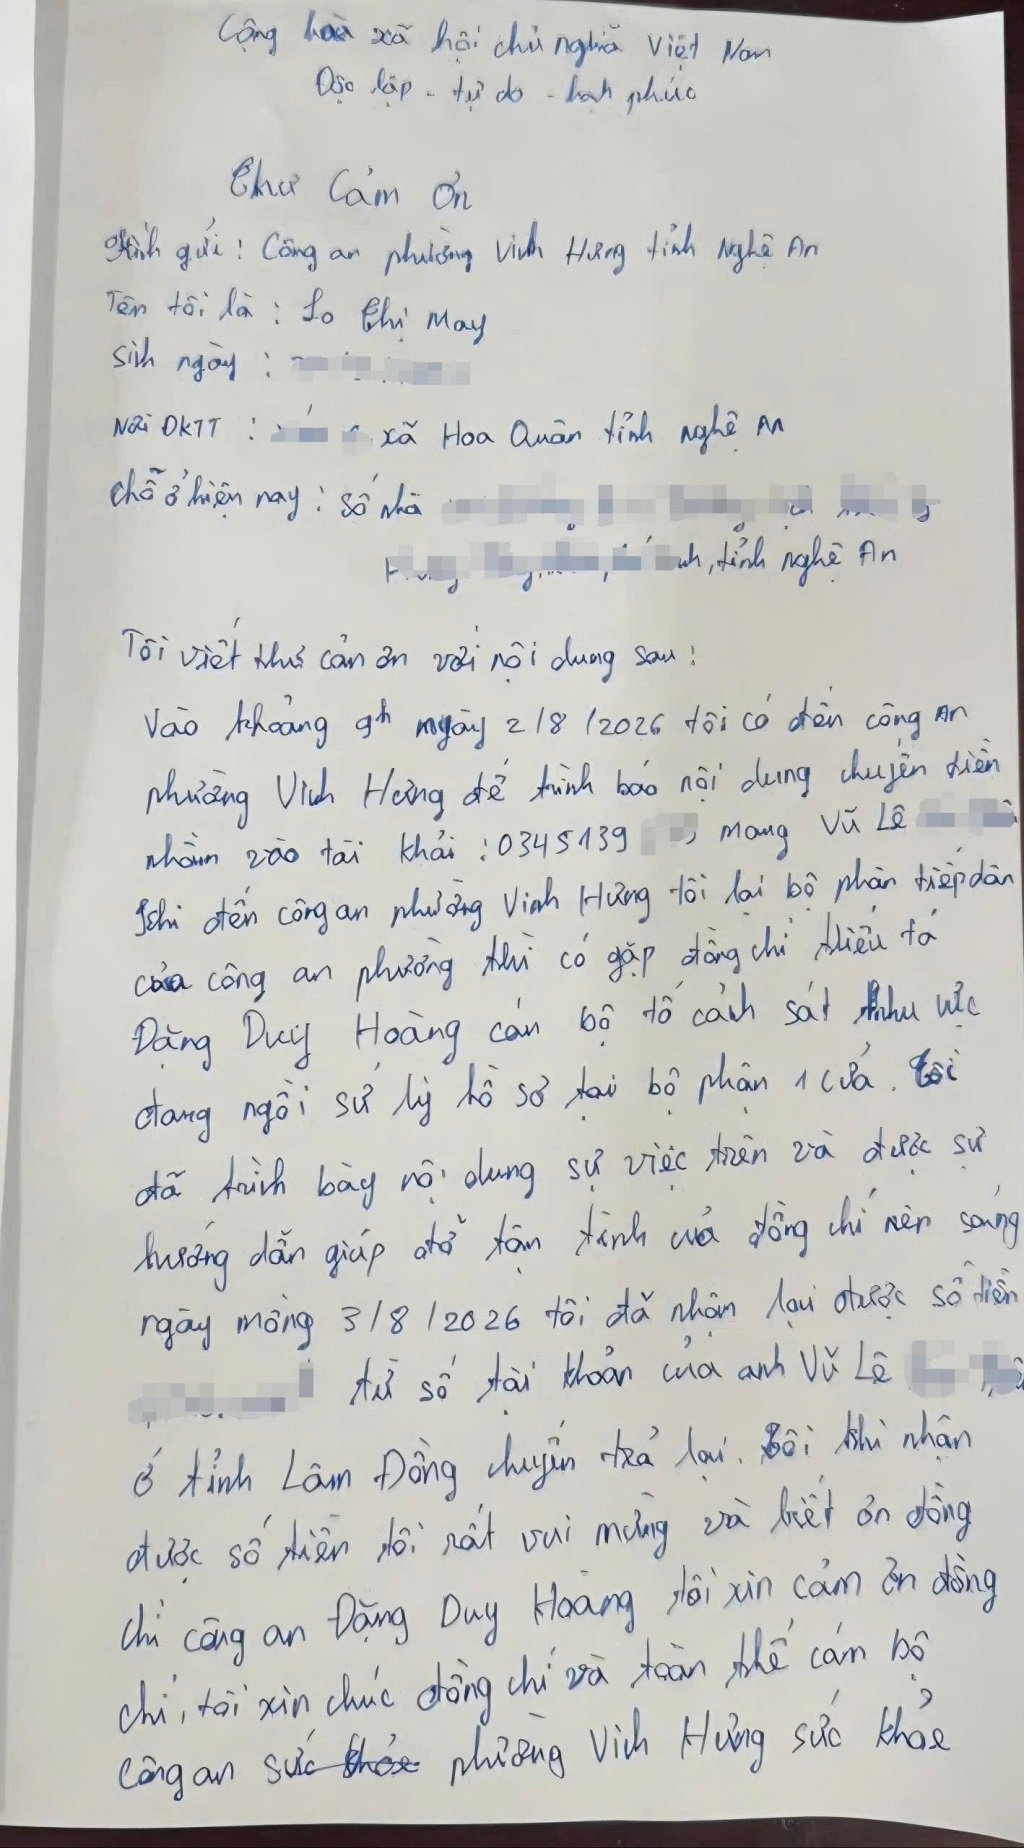 Cộng hoà xã hội chủ nghĩa Việt Nam
Độc lập - tự do - hạnh phúc
Thư Cảm Ơn
Kính gửi: Công an phường Vinh Hưng tỉnh Nghệ An
Tên tôi là: Lo Thị May
Sinh ngày:
Nơi ĐKTT: xã Hoa Quân tỉnh nghệ An
chỗ ở hiện nay: Số nhà
tỉnh nghệ An
Tôi viết thư cảm ơn với nội dung sau:
Vào khoảng 9h ngày 2/8/2026 tôi có đến công An
phường Vinh Hưng để trình báo nội dung chuyển tiền
nhầm vào tài khải: 0345139 mang Vũ Lê
Khi đến công an phường Vinh Hưng tôi lại bộ phận tiếp dân
của công an phường thì có gặp đồng chí thiếu tá
Đặng Duy Hoàng cán bộ tổ cảnh sát khu vực
đang ngồi sử lý hồ sơ tại bộ phận 1 cửa. Tôi
đã trình bày nội dung sự việc trên và được sự
hướng dẫn giúp đỡ tận tình của đồng chí nên sáng
ngày mồng 3/8/2026 tôi đã nhận lại được số tiền
từ số tài khoản của anh Vũ Lê
ở tỉnh Lâm Đồng chuyển trả lại. Tôi khi nhận
được số tiền tôi rất vui mừng và biết ơn đồng
chí công an Đặng Duy Hoàng tôi xin cảm ơn đồng
chí, tôi xin chúc đồng chí và toàn thể cán bộ
công an sức khỏe phường Vinh Hưng sức khỏe